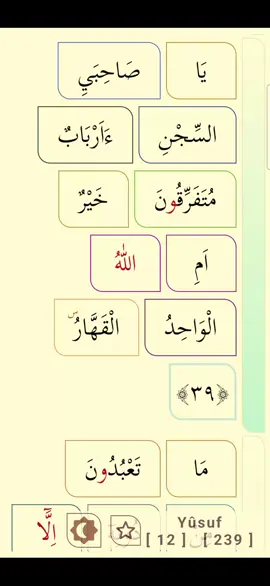 يَا صَاحِبَيِ
السِّجْنِ ءَاَرْبَابٌ
مُتَفَرِّقُونَ خَيْرٌ
اَمِ اللّٰهُ
الْوَاحِدُ الْقَهَّارُۜ
﴿٣٩﴾
مَا تَعْبُدُونَ
مِنْ اِلَّٓا
Yûsuf
[ 12 ] [ 239 ]